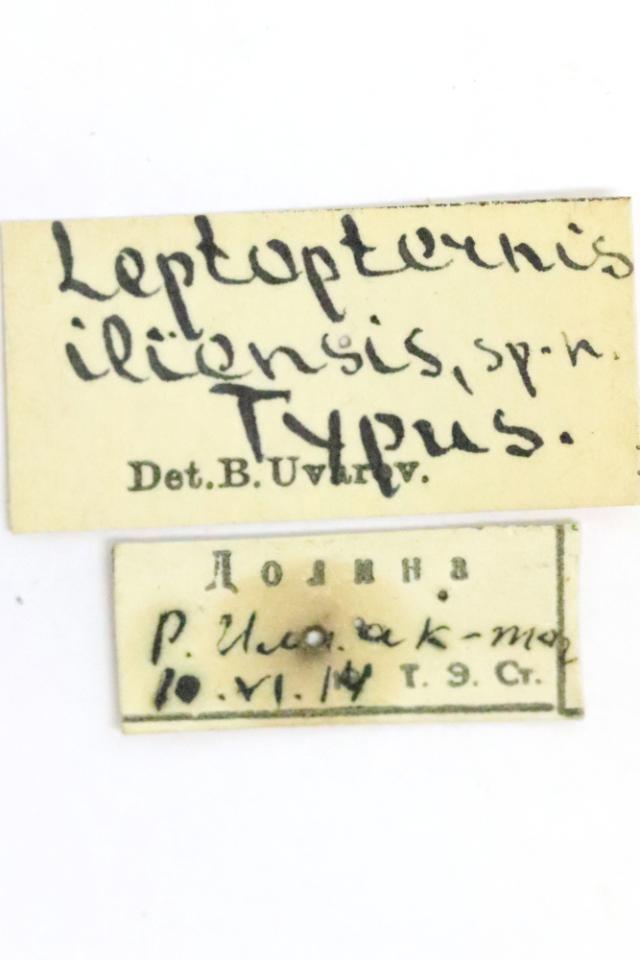 Leptopternis
iliensis, sp.n.
Typus.
Det. B. Uvarov.
Долина
Р. Или. ак-тог
10.VI.14 Т. Э. Ст.